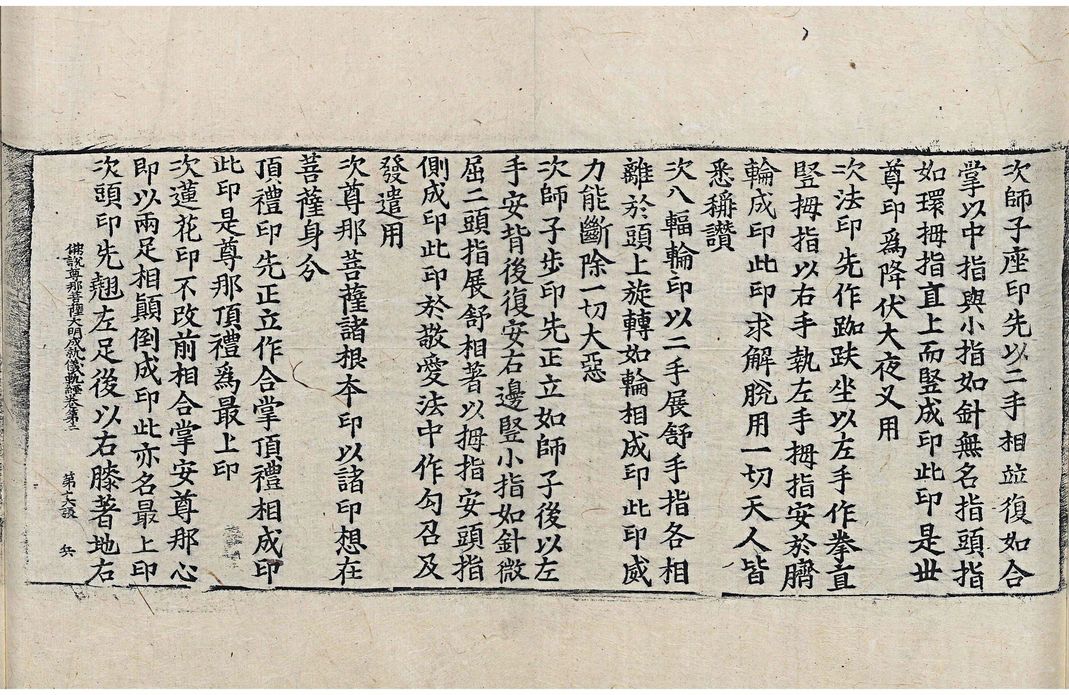 次師子座印先以二手相並復如合
掌以中指與小指如針無名指頭指
如環拇指直上而竪成印此印是世
尊印為降伏大夜叉用
次法印先作跏趺坐以左手作拳直
竪拇指以右手執左手拇指安於臍
輪成印此印求解脫用一切天人皆
悉稱讚
次八輻輪印以二手展舒手指各相
離於頭上旋轉如輪相成印此印威
力能斷除一切大惡
次師子步印先正立如師子後以左
手安背後復安右邊竪小指如針微
屈二頭指展舒相著以拇指安頭指
側成印此印於敬愛法中作勾召及
發遣用
次尊那菩薩諸根本印以諸印想在
菩薩身分
頂禮印先正立作合掌頂禮相成印
此印是尊那頂禮為最上印
次蓮花印不改前相合掌安尊那心
即以兩足相顛倒成印此亦名最上印
次頭印先翹左足後以右膝著地右
佛說尊那菩薩大明成就儀軌經卷第三 第六段 兵